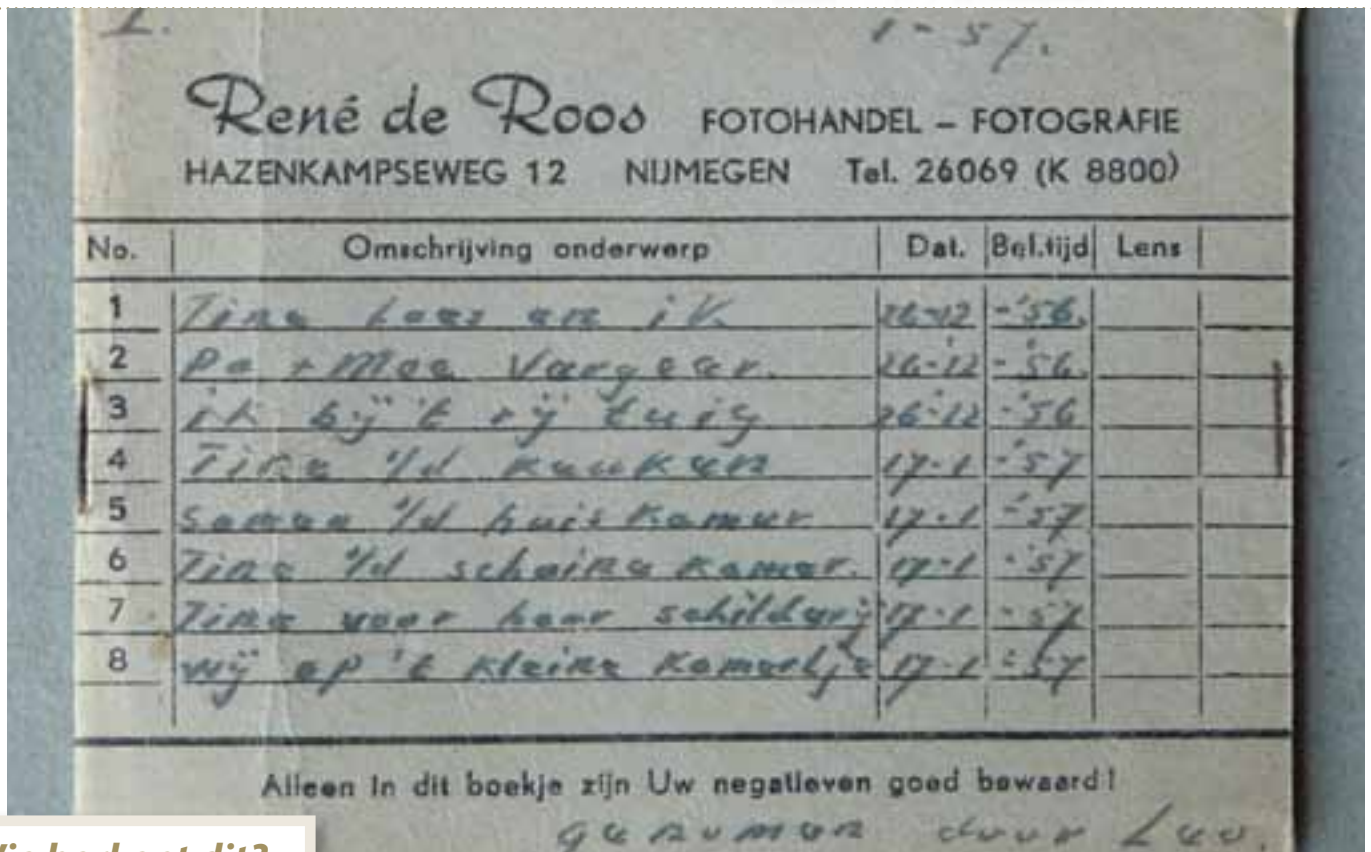 I. 1-57.
René de Roos FOTOHANDEL – FOTOGRAFIE
HAZENKAMPSEWEG 12 NIJMEGEN Tel. 26069 (K 8800)
No. Omschrijving onderwerp Dat. Bel.tijd Lens
1 Tina en ik 26-12 - '56.
2 Pa + Moe 26-12 - '56.
3 ik bij 't rijtuig 26-12 - '56
4 Tina i/d keuken 17-1 - '57
5 samen i/d huiskamer 17-1 - '57
6 Tina i/d kamer. 17-1 - '57
7 Tina voor haar schilderij 17-1 - '57
8 wij op 't kleine kamertje 17-1 - '57
Alleen in dit boekje zijn Uw negatieven goed bewaard!
genomen door Leo.